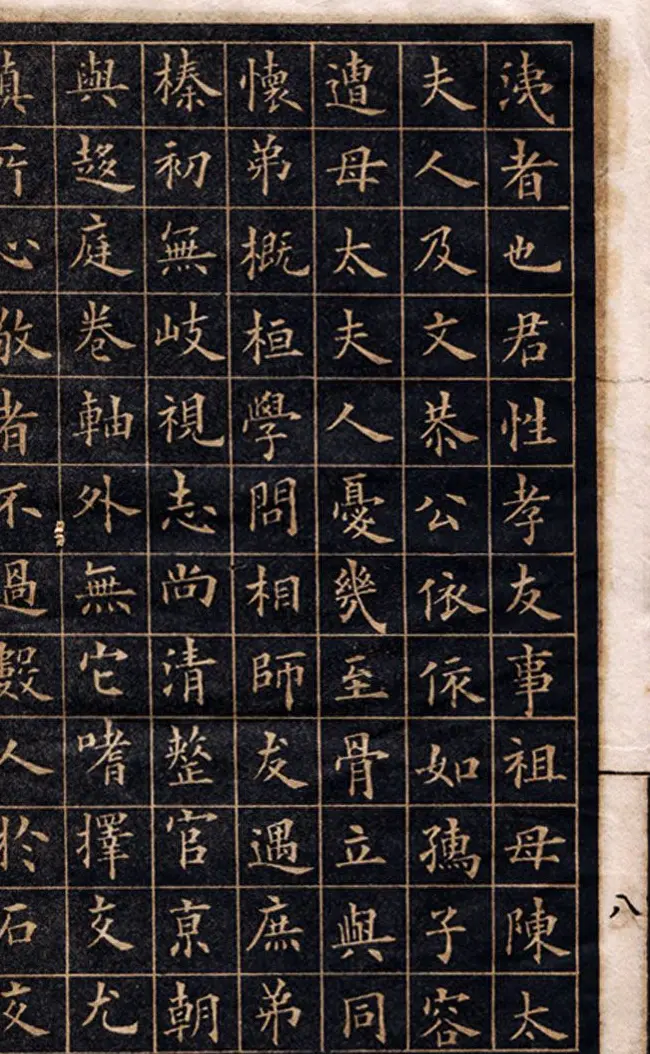 洟者也君性孝友事祖母陳太
夫人及文恭公依依如孺子容
遭母太夫人憂幾至骨立與同
懷弟概桓學問相師友遇庶弟
榛初無岐視志尚清整官京朝
與趍庭卷軸外無它嗜擇交尤
慎所心敬者不過數人於石交
八